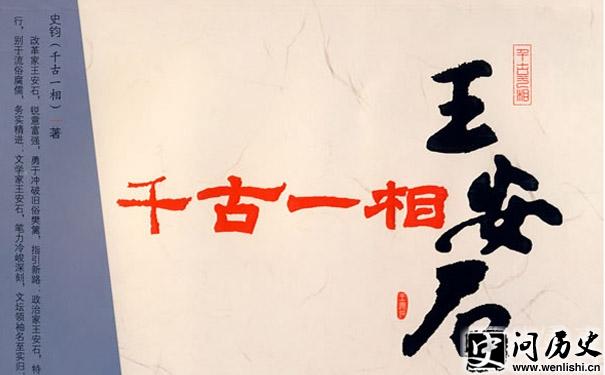 千古一相
王安石
千古一相
史钧（千古一相） 著
改革家王安石，锐意富强，勇于冲破旧俗樊篱，指引新路；政治家王安石，特
行，别于流俗腐儒，务实精进；文学家王安石，笔力冷峻深刻，文坛领袖名至实归，
史 问历史
www.wenlishi.cn